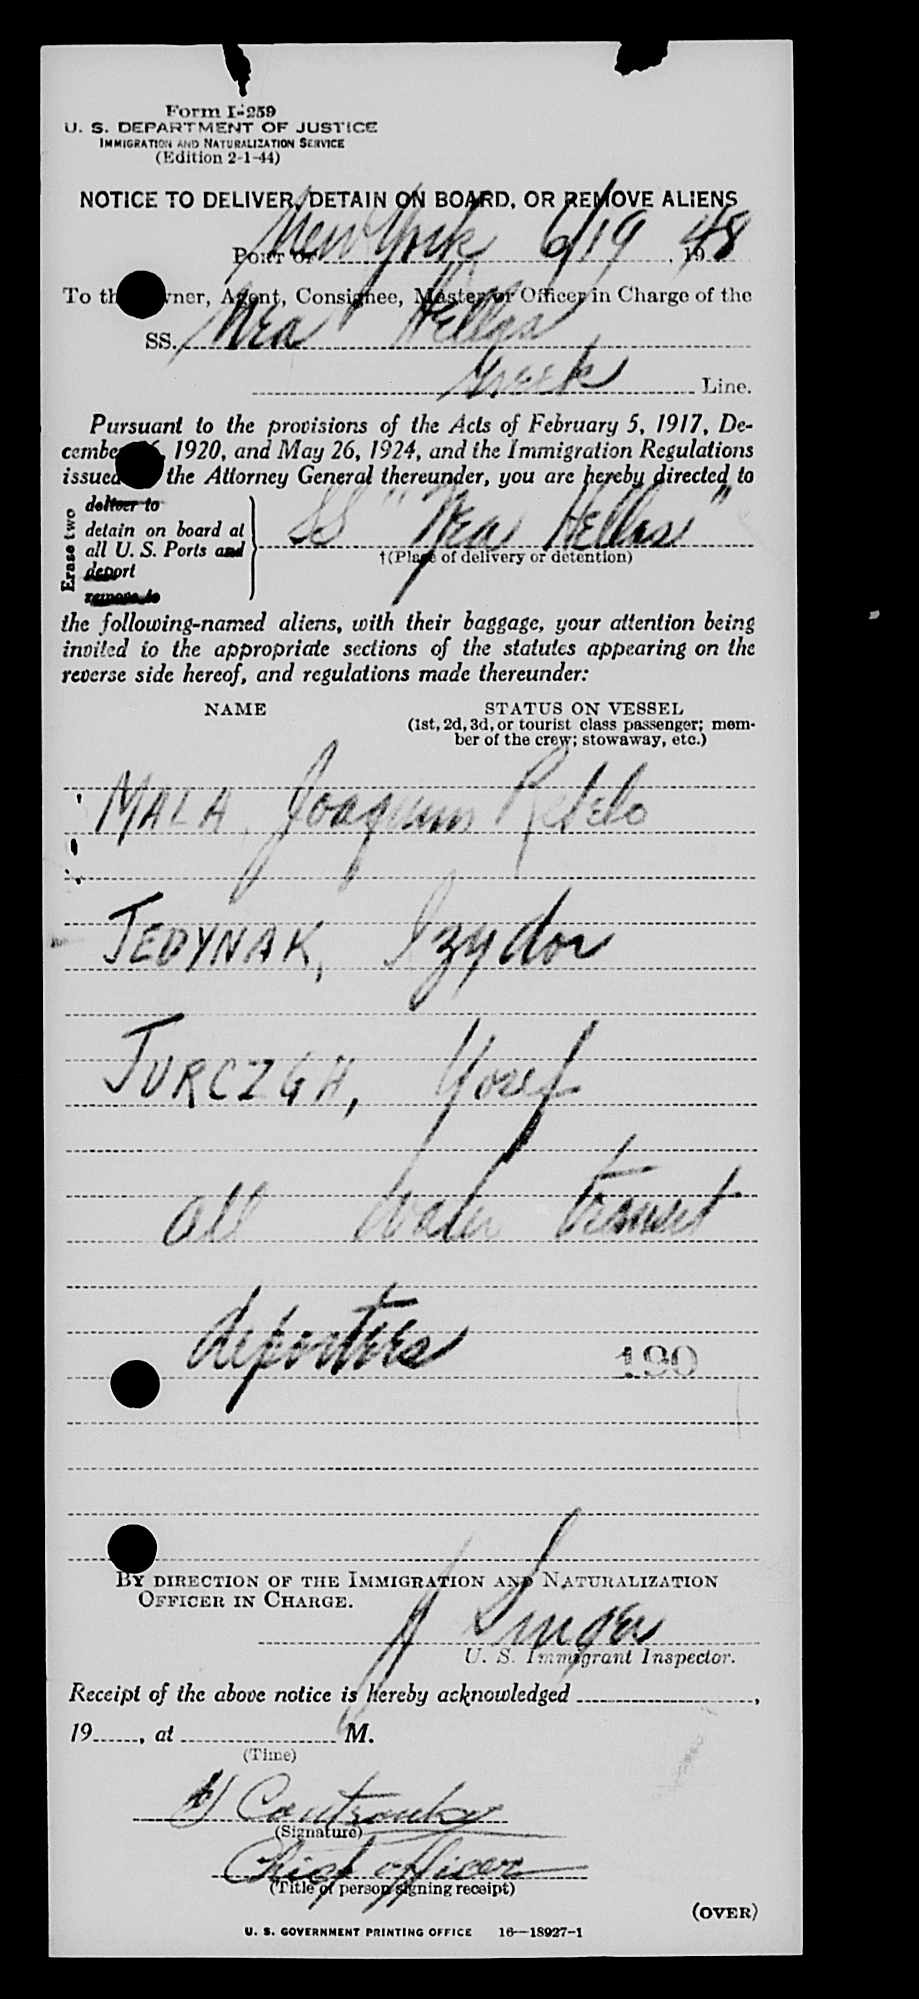 Form I-259
U. S. DEPARTMENT OF JUSTICE
IMMIGRATION AND NATURALIZATION SERVICE
(Edition 2-1-44)
NOTICE TO DELIVER, DETAIN ON BOARD, OR REMOVE ALIENS
Port of New York 6/19, 1948
To the Owner, Agent, Consignee, Master or Officer in Charge of the
SS. Nea Hellas
Greek Line.
Pursuant to the provisions of the Acts of February 5, 1917, De-
cember 26, 1920, and May 26, 1924, and the Immigration Regulations
issued the Attorney General thereunder, you are hereby directed to
Erase two
deliver to
detain on board at
all U. S. Ports and
deport
remove to
SS "Nea Hellas"
†(Place of delivery or detention)
the following-named aliens, with their baggage, your attention being
invited to the appropriate sections of the statutes appearing on the
reverse side hereof, and regulations made thereunder:
NAME STATUS ON VESSEL
(1st, 2d, 3d, or tourist class passenger; mem-
ber of the crew; stowaway, etc.)
MALA, Joaquim Rebelo
JEDYNAK, Izydor
JURCZGA, Yosef
all water transit
deportees
190
BY DIRECTION OF THE IMMIGRATION AND NATURALIZATION
OFFICER IN CHARGE.
J Singer
U. S. Immigrant Inspector.
Receipt of the above notice is hereby acknowledged ,
19 , at M.
(Time)
(Signature)
Chief officer
(Title of person signing receipt)
(OVER)
U. S. GOVERNMENT PRINTING OFFICE 16—18927-1